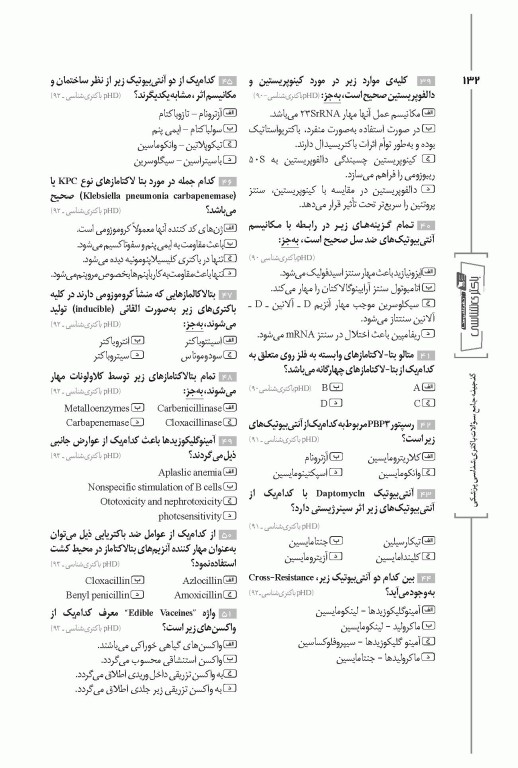 ۱۳۲
۳۹ کلیه‌ی موارد زیر در مورد کینوپریستین و
دالفوپریستین صحیح است، به‌جز: (pHD باکتری‌شناسی - ۹۰)
الف مکانیسم عمل آنها مهار ۲۳SrRNA می‌باشد.
ب در صورت استفاده به‌صورت منفرد، باکتریواستاتیک
بوده و به‌طور توأم اثرات باکتریسیدال دارند.
ج کینوپریستین چسبندگی دالفوپریستین به ۵۰S
ریبوزومی را فراهم می‌سازد.
د دالفوپریستین در مقایسه با کینوپریستین، سنتز
پروتئین را سریع‌تر تحت تأثیر قرار می‌دهد.
۴۰ تمام گزینه‌های زیر در رابطه با مکانیسم
آنتی‌بیوتیک‌های ضد سل صحیح است، به‌جز:
(pHD باکتری‌شناسی - ۹۰)
الف ایزونیازید باعث مهار سنتز اسیدفولیک می‌شود.
ب اتامبوتول سنتز آرابینوگالاکتان را مهار می‌کند.
ج سیکلوسرین موجب مهار آنزیم D ـ آلانین ـ D ـ
آلانین سنتتاز می‌شود.
د ریفامپین باعث اختلال در سنتز mRNA می‌شود.
۴۱ متالو بتا-لاکتامازهای وابسته به فلز روی متعلق به
کدام‌یک از بتا-لاکتامازهای چهارگانه می‌باشد؟
الف A ب B (pHD باکتری‌شناسی - ۹۰)
ج C د D
۴۲ رسپتور PBP۳ مربوط به کدام‌یک از آنتی‌بیوتیک‌های
زیر است؟ (pHD باکتری‌شناسی - ۹۱)
الف کلاریترومایسین ب آزترونام
ج وانکومایسین د اسپکتینومایسین
۴۳ آنتی‌بیوتیک Daptomycin با کدام‌یک از
آنتی‌بیوتیک‌های زیر اثر سینرژیستی دارد؟
(pHD باکتری‌شناسی - ۹۱)
الف تیکارسیلین ب جنتامایسین
ج کلیندامایسین د آزیترومایسین
۴۴ بین کدام دو آنتی‌بیوتیک زیر، Cross-Resistance
به‌وجود می‌آید؟ (pHD باکتری‌شناسی - ۹۲)
الف آمینوگلیکوزیدها – لینکومایسین
ب ماکرولید – لینکومایسین
ج آمینو گلیکوزیدها – سیپروفلوکساسین
د ماکرولیدها – جنتامایسین
۴۵ کدام‌یک از دو آنتی‌بیوتیک زیر از نظر ساختمان و
مکانیسم اثر، مشابه یکدیگرند؟ (pHD باکتری‌شناسی - ۹۲)
الف آزترونام – تازوباکتام
ب سولباکتام – ایمی پنم
ج تیکوپلانین – وانکوماسین
د باسیتراسین – سیگلوسرین
۴۶ کدام جمله در مورد بتا لاکتامازهای نوع KPC یا
(Klebsiella pneumonia carbapenemase) صحیح
می‌باشد؟ (pHD باکتری‌شناسی - ۹۲)
الف ژن‌های کد کننده آنها معمولاً کروموزومی است.
ب باعث مقاومت به ایمی پنم و سفوتاکسیم می‌شود.
ج تنها در باکتری کلبسیلاپنومونیه دیده می‌شود.
د تنها باعث مقاومت به کارباپنم‌ها بخصوص مروپنم می‌شود.
۴۷ بتالاکالمازهایی که منشأ کروموزومی دارند در کلیه
باکتری‌های زیر به‌صورت القائی (inducible) تولید
می‌شوند، به‌جز: (pHD باکتری‌شناسی - ۹۲)
الف اسینتوباکتر ب انتروباکتر
ج سودوموناس د سیتروباکتر
۴۸ تمام بتالاکتامازهای زیر توسط کلاولونات مهار
می‌شوند، به‌جز: (pHD باکتری‌شناسی - ۹۲)
الف Carbenicillinase ب Metalloenzymes
ج Cloxacillinase د Carbapenemase
۴۹ آمینوگلیکوزیدها باعث کدام‌یک از عوارض جانبی
ذیل می‌گردند؟ (pHD باکتری‌شناسی - ۹۳)
الف Aplaslic anemia
ب Nonspecific stimulation of B cells
ج Ototoxicity and nephrotoxicity
د photosensitivity
۵۰ از کدام‌یک از عوامل ضد باکتریایی ذیل می‌توان
به‌عنوان مهار کننده آنزیم‌های بتالاکتاماز در محیط کشت
استفاده نمود؟ (pHD باکتری‌شناسی - ۹۳)
الف Azlocillin ب Cloxacillin
ج Amoxicillin د Benyl penicillin
۵۱ واژه "Edible Vaceines" معرف کدام‌یک از
واکسن‌های زیر است؟ (pHD باکتری‌شناسی - ۹۳)
الف واکسن‌های گیاهی خوراکی می‌باشند.
ب واکسن استنشاقی محسوب می‌گردد.
ج به واکسن تزریقی داخل وریدی اطلاق می‌گردد.
د به واکسن تزریقی زیر جلدی اطلاق می‌گردد.
باکتری‌شناسی
گنجینه جامع سوالات باکتری‌شناسی پزشکی